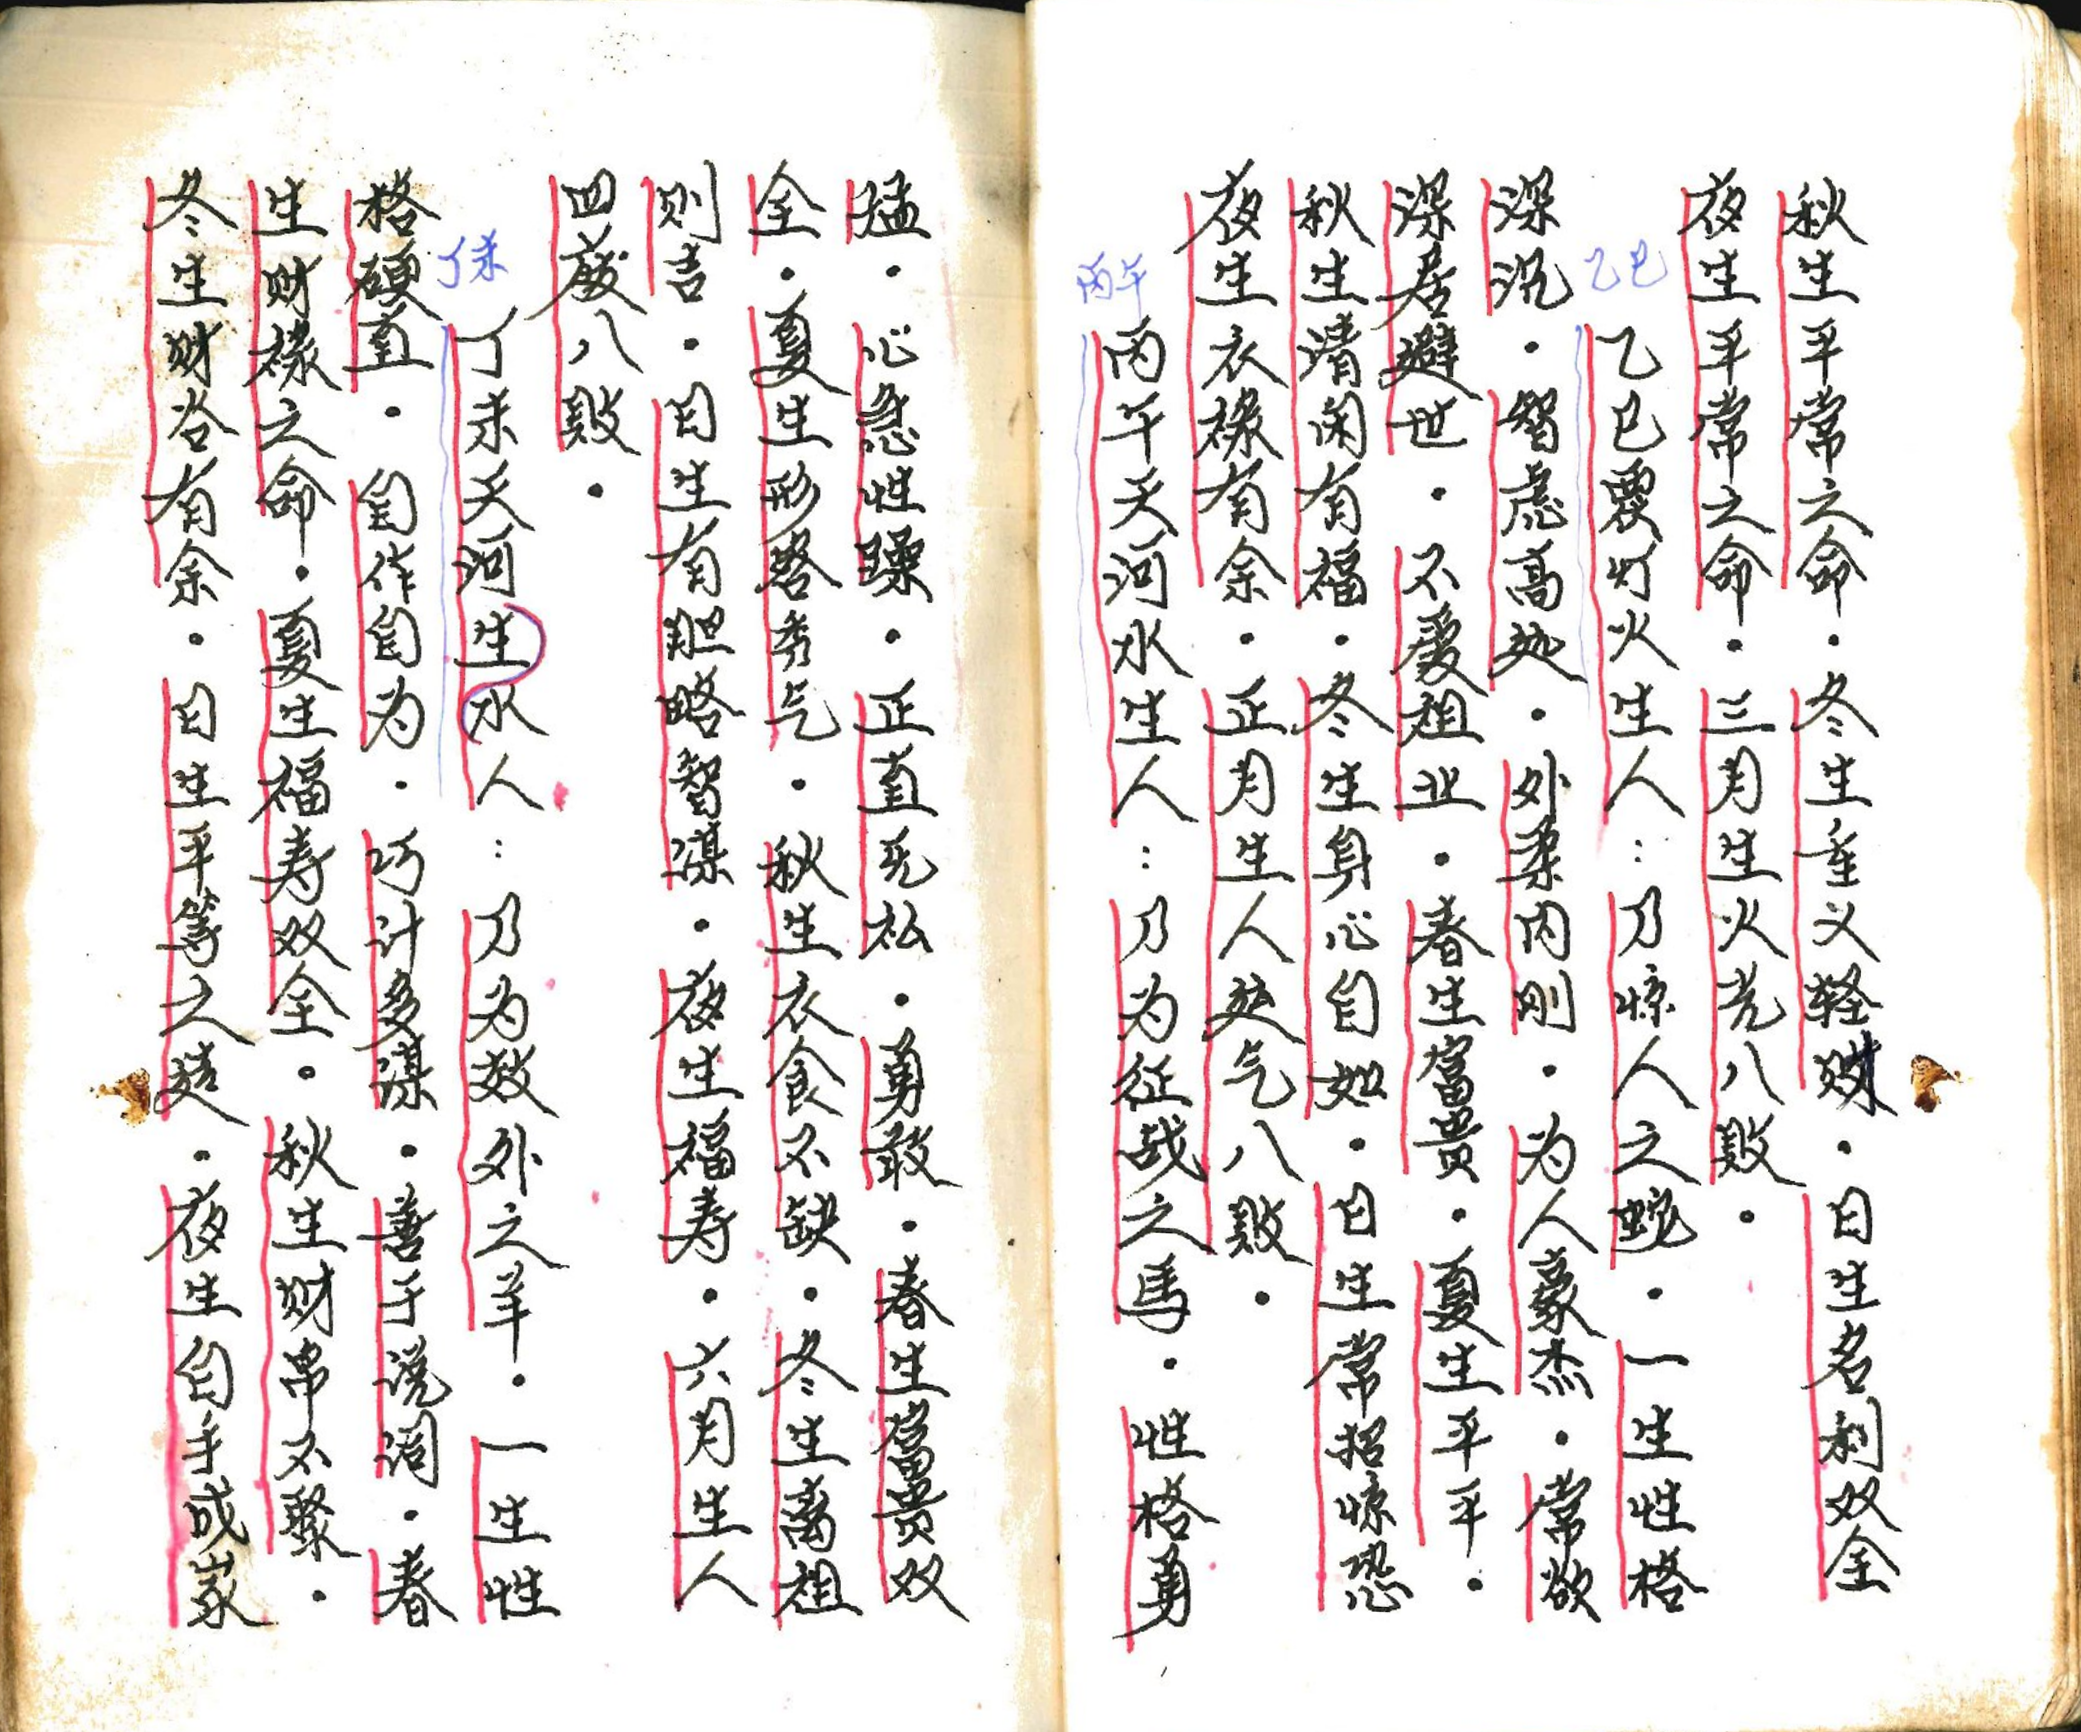 秋生平常之命．冬生重义轻财．日生名利双全
夜生平常之命．三月生火光八败．
乙巳
乙巳覆灯火生人：乃惊人之蛇．一生性格
深沉．智虑高远．外柔内刚．为人豪杰．常欲
深居避世．不爱祖业．春生富贵．夏生平平．
秋生清闲有福．冬生身心自如．日生常招惊恐
夜生衣禄有余．正月生人处气八败．
丙午
丙午天河水生人：乃为征战之馬．性格勇
猛．心急性躁．正直无私．勇敢．春生富贵双
全．夏生形容秀气．秋生衣食不缺．冬生离祖
则吉．日生有胆略智谋．夜生福寿．六月生人
四废八败．
丁未
丁未天河生水人：乃为效外之羊．一生性
格硬直．自作自为．巧计多谋．善于说词．春
生财禄之命．夏生福寿双全．秋生财帛不聚．
冬生财谷有余．日生平等之造．夜生自手成家